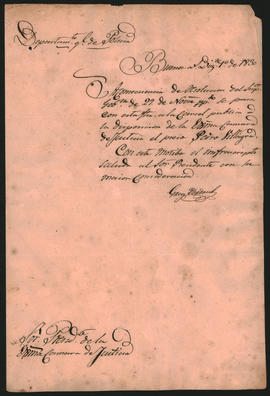 Departam.to g.l de Policia
Buenos A.s Dic.e 1.o de 1830
A consecuencia de resolucion del Sup.or
Gob.no de 29 de Nov.e se pone
con esta fha. a la Carcel publica a
la disposicion de la Exma Camara
de Justicia el preso Pedro Villagra
Con este motivo el infrascripto
saluda al Sor Presidente con su
mayor consideracion
Sor. Presid.te de la
Exma Camara de Justicia